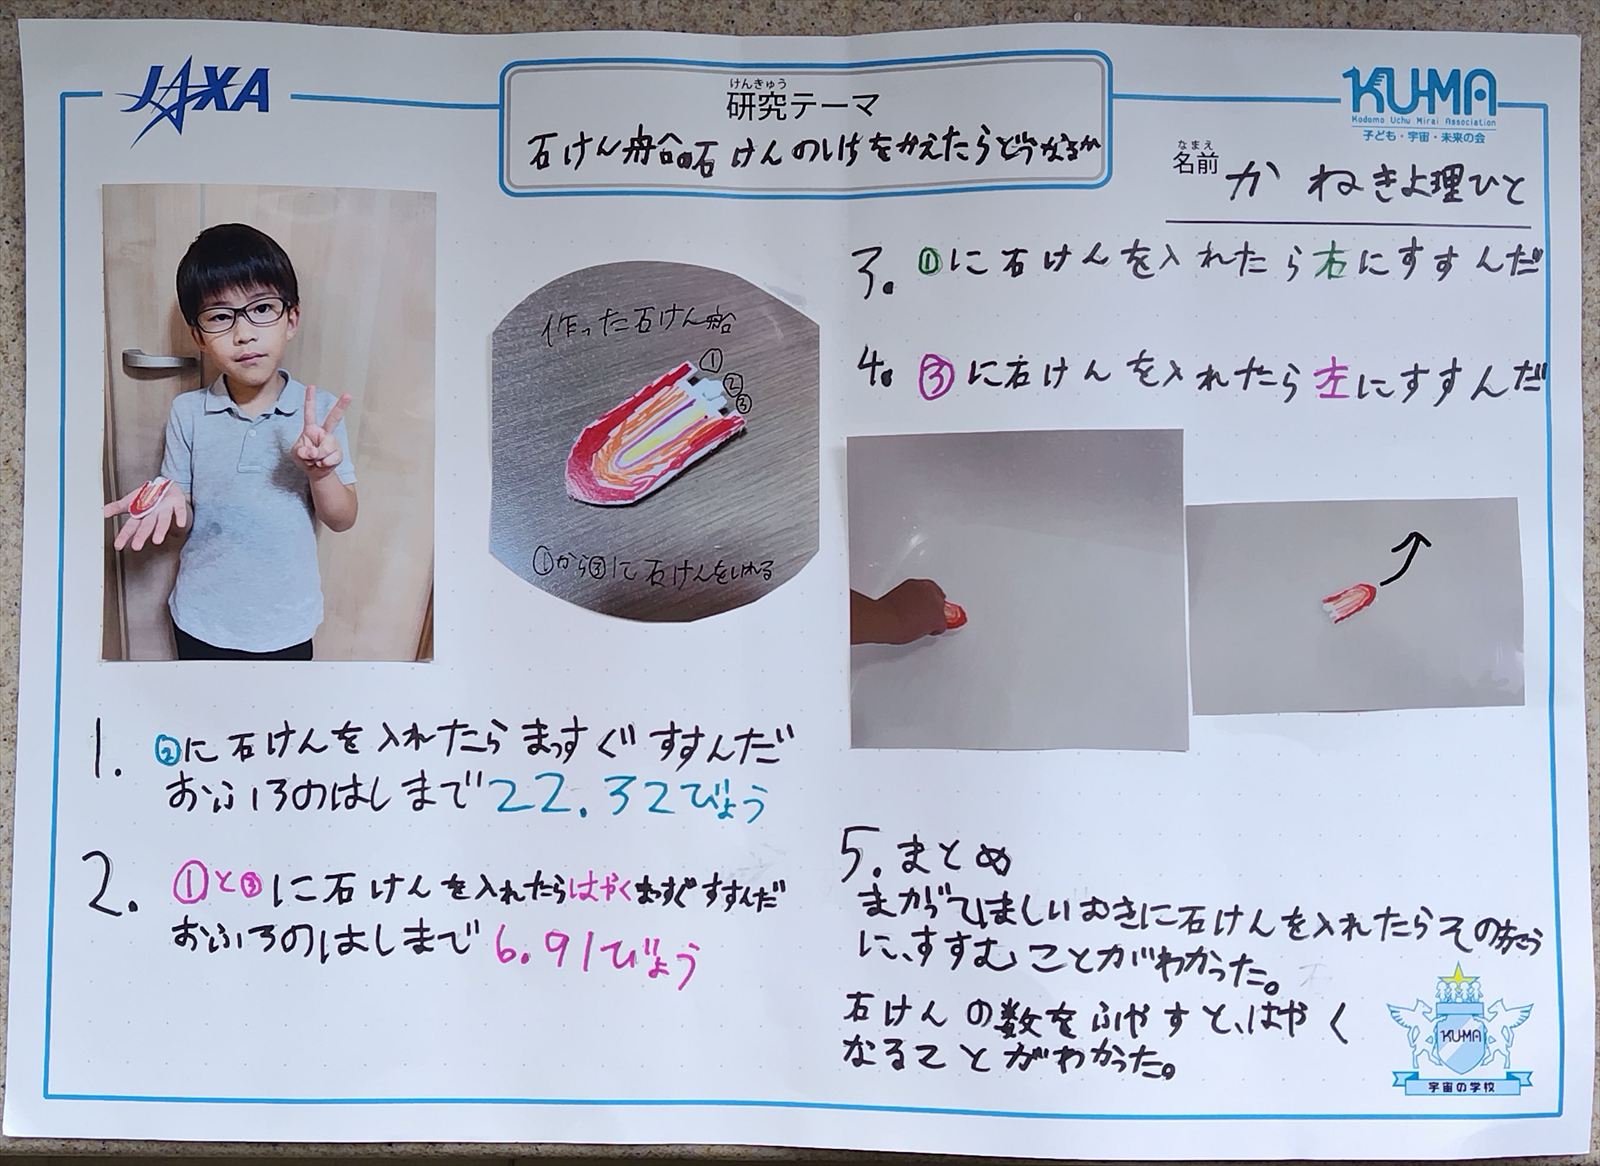 JAXA
けんきゅう
研究テーマ
石けん船の石けんのいちをかえたらどうなるか
KU-MA
Kodomo Uchu Mirai Association
子ども・宇宙・未来の会
なまえ
名前
かねきよ理ひと
作った石けん船
①
②
③
①から③に石けんをいれる
1. ②に石けんを入れたらまっすぐすすんだ
おふろのはしまで22.32びょう
2. ①と③に石けんを入れたらはやくまっすぐすすんだ
おふろのはしまで6.91びょう
3. ①に石けんを入れたら右にすすんだ
4. ③に石けんを入れたら左にすすんだ
5. まとめ
まがってほしいむきに石けんを入れたらそのほう
に、すすむことがわかった。
石けんの数をふやすと、はやく
なることがわかった。
KU-MA
宇宙の学校